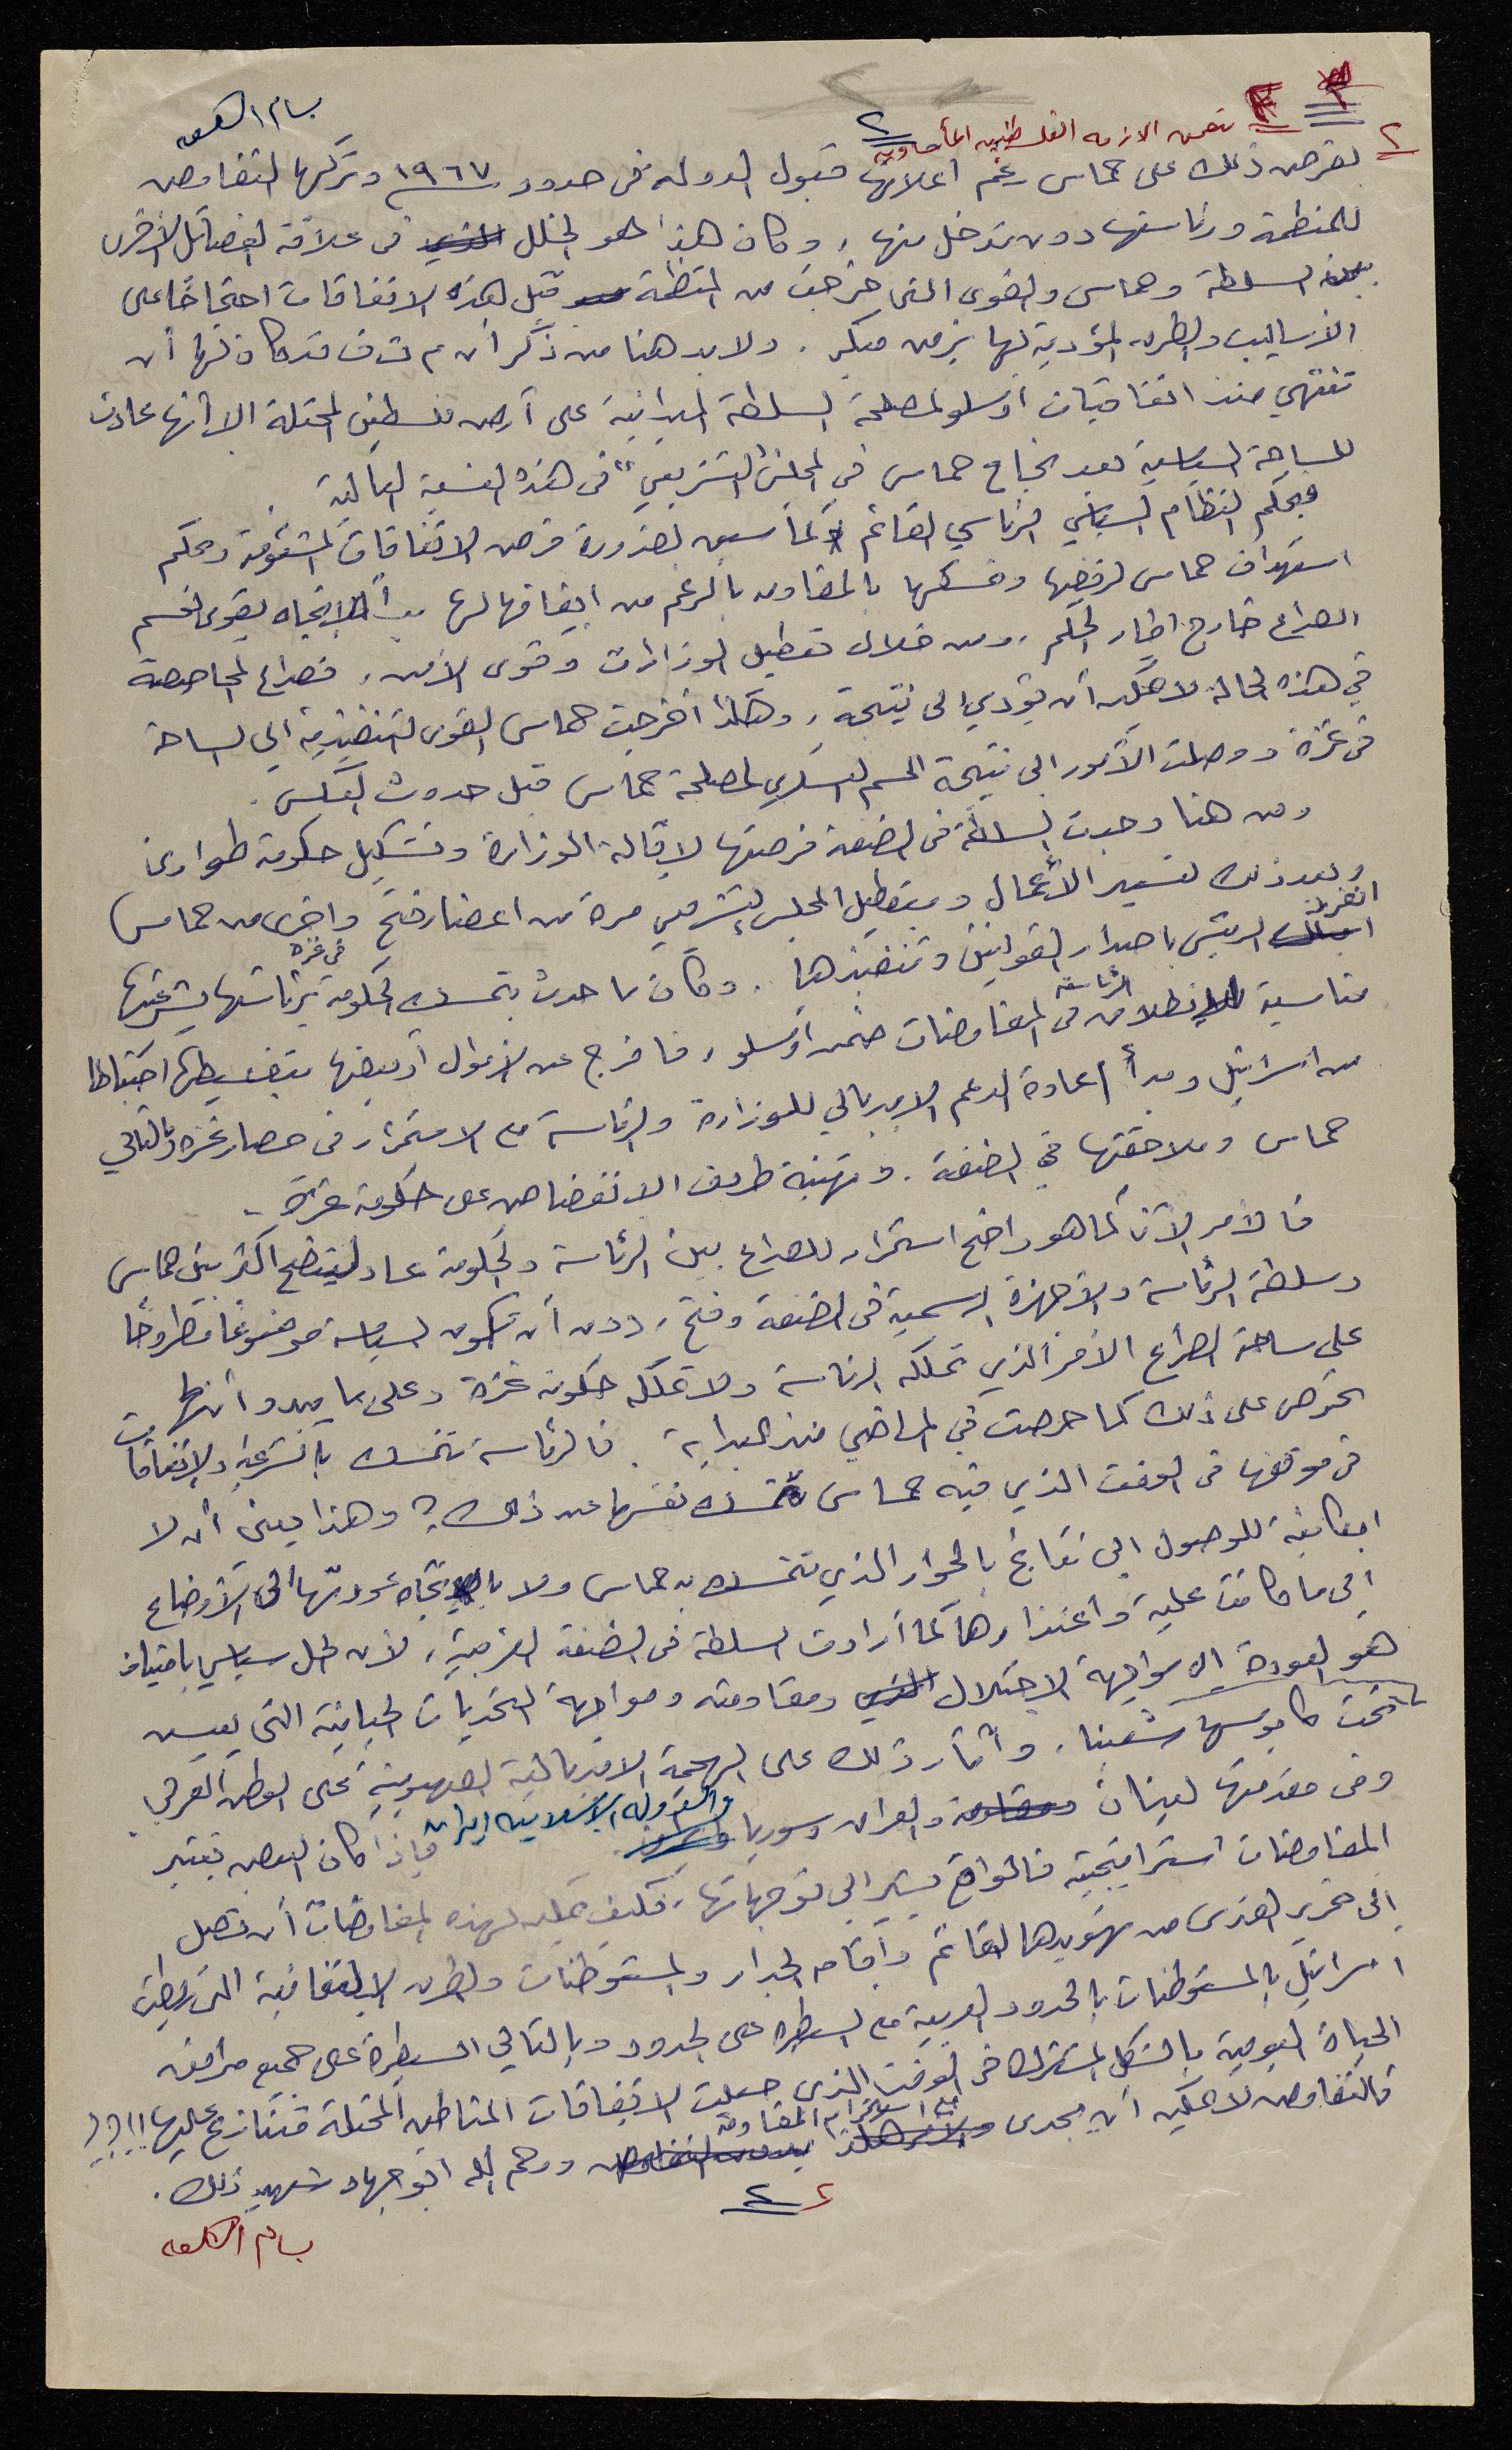 بسام الشكعه
٢ تعمق الازمه الفلسطينيه المأساويه ٢
لفرض ذلك على حماس رغم اعلانها قبول الدولة في حدود ١٩٦٧ وتركها التفاوض
للمنظمة ورئاستها دون تدخل منها، وكان هذا هو الخلل في علاقة الفصائل الأخرى
بين السلطة وحماس والقوى التي خرجت من المنظمة قبل هذه الاتفاقات احتجاجًا على
الأساليب والطرق المؤدية لها بزمن مبكر. ولا بد هنا من ذكر أن م ت ف قد كان لها أن
تنتهي منذ اتفاقيات أوسلو لمصلحة السلطة الميدانية على أرض فلسطين المحتلة الا أنها عادت
للساحة السياسية بعد نجاح حماس في المجلس "التشريعي" في هذه النسبة العالية.
فبحكم النظام السياسي الرئاسي القائم كما سبق لضرورة فرض الاتفاقات المشؤومة وبحكم
استهداف حماس لرفضها وتمسكها بالمقاومة بالرغم من ايقافها لها بدأ الاتجاه يقوى لحسم
الصراع خارج اطار الحكم، ومن خلال تعطيل الوزارات وقوى الأمن، فصراع المحاصصة
في هذه الحالة لا يمكن أن يؤدي الى نتيجة، وهكذا أخرجت حماس القوى التنفيذية الى الساحة
في غزة ووصلت الأمور الى نتيجة الحسم العسكري لمصلحة حماس قبل حدوث العكس.
ومن هنا وجدت السلطة في الضفة فرصتها لاقالة الوزارة وتشكيل حكومة طوارئ
وبعد ذلك لتسيير الأعمال وبتعطيل المجلس التشريعي مرة من اعضاء فتح واخرى من حماس
انفرد الرئيس باصدار القوانين وتنفيذها. وكان ما حدث بتمسك الحكومة في غزة برئاستها بشرعيتها
مناسبة لانطلاق الرئاسة في المفاوضات ضمن أوسلو، فافرج عن الأموال أو بعضها بتقسيطها احتياطا
من اسرائيل وبدأ اعادة الدعم الامبريالي للوزارة والرئاسة مع الاستمرار في حصار غزة وبالتالي
حماس وملاحقتها في الضفة. وتهيئة ظروف الانقضاض على حكومة غزة.
فالأمر الآن كما هو واضح استمرار للصراع بين الرئاسة والحكومة عاد ليتضح اكثر بين حماس
وسلطة الرئاسة والأجهزة الرسمية في الضفة وفتح، دون أن تكون السياسة موضوعًا مطروحًا
على ساحة الصراع الأمر الذي تملكه الرئاسة ولا تملكه حكومة غزة وعلى ما يبدو أنها
تحرص على ذلك كما حرصت في الماضي منذ البداية. فالرئاسة تتمسك بالشرعية والاتفاقات
في موقفها في الوقت الذي فيه حماس تمسك نفسها عن ذلك؟ وهذا يعني أن لا
امكانية للوصول الى نتائج بالحوار الذي تتمسك به حماس ولا باتجاه عودتها الى الأوضاع
الى ما كانت عليه واعتذارها كما أرادت السلطة في الضفة الغربية، لأن الحل سياسي بامتياز
هو العودة الى مواجهة الاحتلال ومقاومته ومواجهة التحديات الحياتية التي يعيش
تحت كابوسها شعبنا، وآثار ذلك على الهجمة الامبريالية الصهيونية على الوطن العربي
وفي مقدمتها لبنان والعراق وسوريا والدولة الاسلامية ايران فإذا كان البعض يعتبر
المفاوضات استراتيجية فالواقع يشير الى توجهاتها، فكيف يمكن لهذه المفاوضات أن تصل
إلى تحرير القدس من تهويدها القائم وإقامة الجدار والمستوطنات والطرق الالتفافية التي ربطت
اسرائيل بالمستوطنات بالحدود العربية مع السيطرة على الحدود وبالتالي السيطرة على جميع مرافق
الحياة اليومية بالشكل المشترك في الوقت الذي جعلت الاتفاقات المناطق المحتلة متنازع عليها!!؟؟
فالتفاوض لا يمكن أن يجدي مع استمرار المقاومة ورحم الله ابو جهاد شهيد ذلك.
٢ ٢
بسام الشكعه